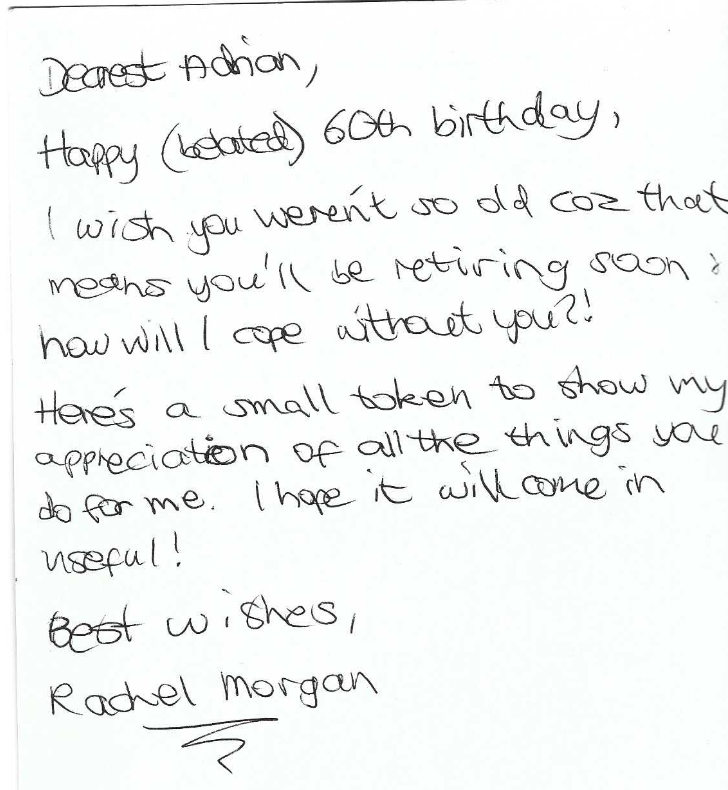 Dearest Adrian,
Happy (belated) 60th birthday,
I wish you weren't so old coz that
means you'll be retiring soon &
how will I cope without you?!
Here's a small token to show my
appreciation of all the things you
do for me. I hope it will come in
useful!
Best wishes,
Rachel Morgan